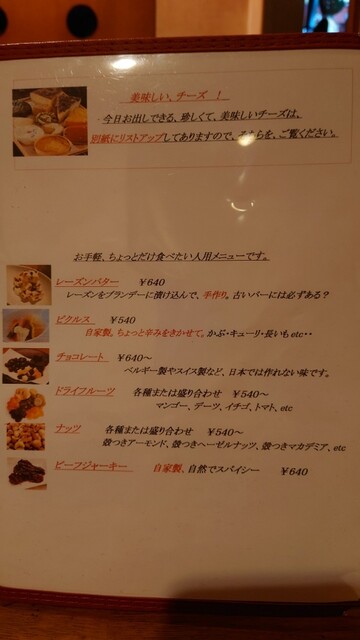 美味しい、チーズ ！
・今日お出しできる、珍しくて、美味しいチーズは、
別紙にリストアップしてありますので、そちらを、ご覧ください。
お手軽、ちょっとだけ食べたい人用メニューです。
レーズンバター ￥640
レーズンをブランデーに漬け込んで、手作り。古いバーには必ずある？
ピクルス ￥540
自家製。ちょっと辛みをきかせて。かぶ・キューリ・長いもetc・・
チョコレート ￥640～
ベルギー製やスイス製など、日本では作れない味です。
ドライフルーツ 各種または盛り合わせ ￥540～
マンゴー、デーツ、イチゴ、トマト、etc
ナッツ 各種または盛り合わせ ￥540～
殻つきアーモンド、殻つきヘーゼルナッツ、殻つきマカデミア、etc
ビーフジャーキー 自家製、自然でスパイシー ￥640